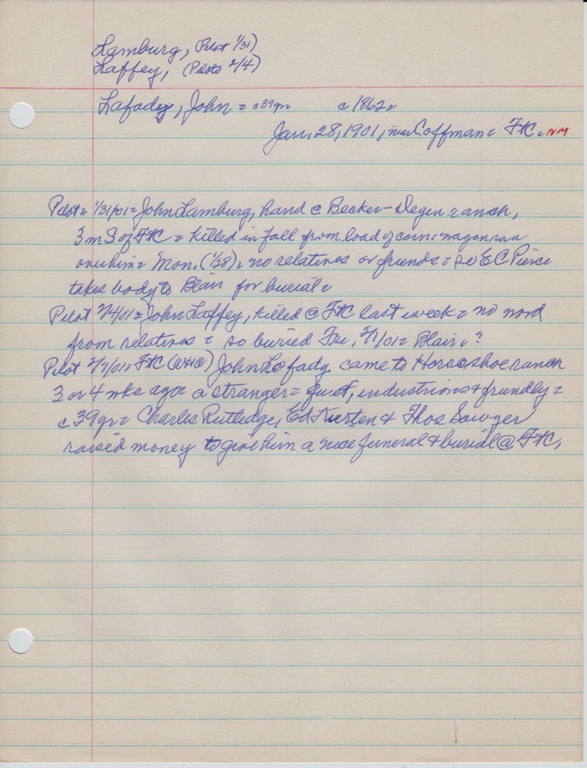 Lamburg, (Pilot 1/31)
Laffey, (Pilot 2/4)
Lafady, John = c39m c1862 =
Jan. 28, 1901, near Coffman = FtC = NM
Pilot = 1/31/01 = John Lamburg, hand @ Becker-Degen ranch,
3 m S of FtC = killed in fall from load of corn = wagon ran
over him = Mon. (1/28) = no relatives or friends = so E C Pierce
takes body to Blair for burial =
Pilot 2/4/01 = John Laffey, killed @ FtC last week = no word
from relatives = so buried Fri, 2/1/01 = Blair = ?
Pilot 2/7/01 = FtC John Lafady came to Horseshoe ranch
3 or 4 wks ago = a stranger = quiet, industrious & friendly =
c39yr = Charles Rutledge, Ed Kursten & Thos Sawyer
raised money to give him a nice funeral & burial @ FtC.